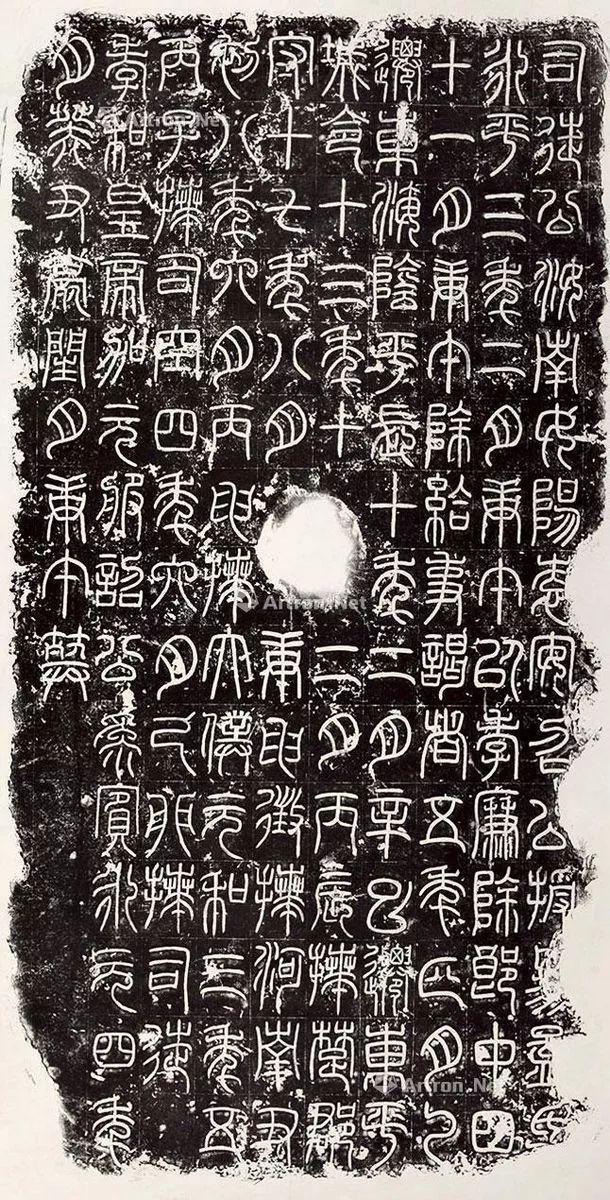 司徒公汝南女陽袁安召公授易孟氏
永平三年二月庚午以孝廉除郎中四
十一月庚午除給事謁者五年正月乙
遷東海陰平長十年二月辛巳遷東平
城令十三年十二月丙辰拜楚郡
守十七年八月庚申徵拜河南尹
初八年六月丙申拜太僕元和三年五
丙子拜司空四年六月己卯拜司徒
孝和皇帝加元服詔公為賓永元四年
月癸丑薨閏月庚午葬
Artron.Net
Artron.Net
Artron.Net